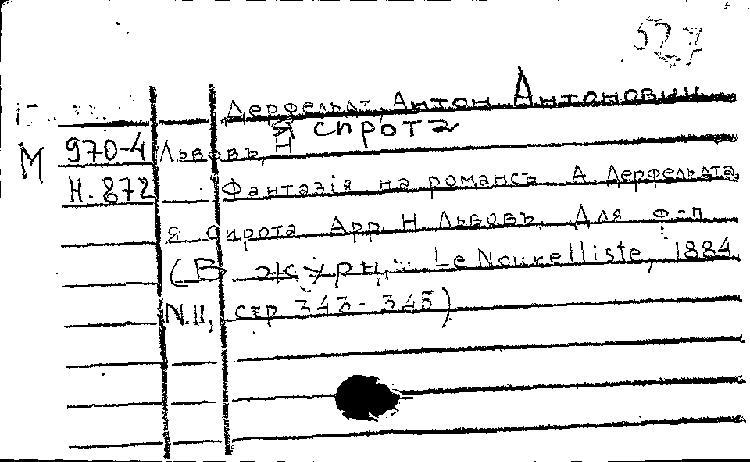 527
Дерфельдт, Антон Антонович
Я сирота
М 970-4 Львовъ, Н
Н. 872 Фантазія на романсъ А Дерфельдта,
Я сирота Арр Н Львовъ, Для ф-п
(В журн.: Le Nouvelliste, 1884
N.11, стр 343-345)